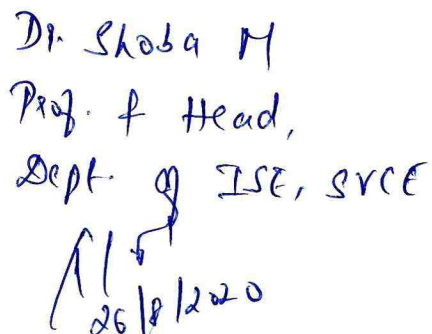 Dr. Shoba M
Prof. & Head,
Dept. of ISE, SVCE
26/8/2020